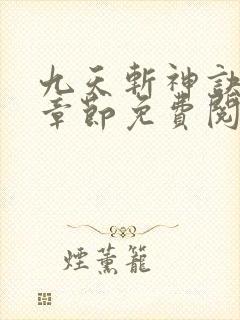 九天斬神訣
章節免費閱
煙薰籠